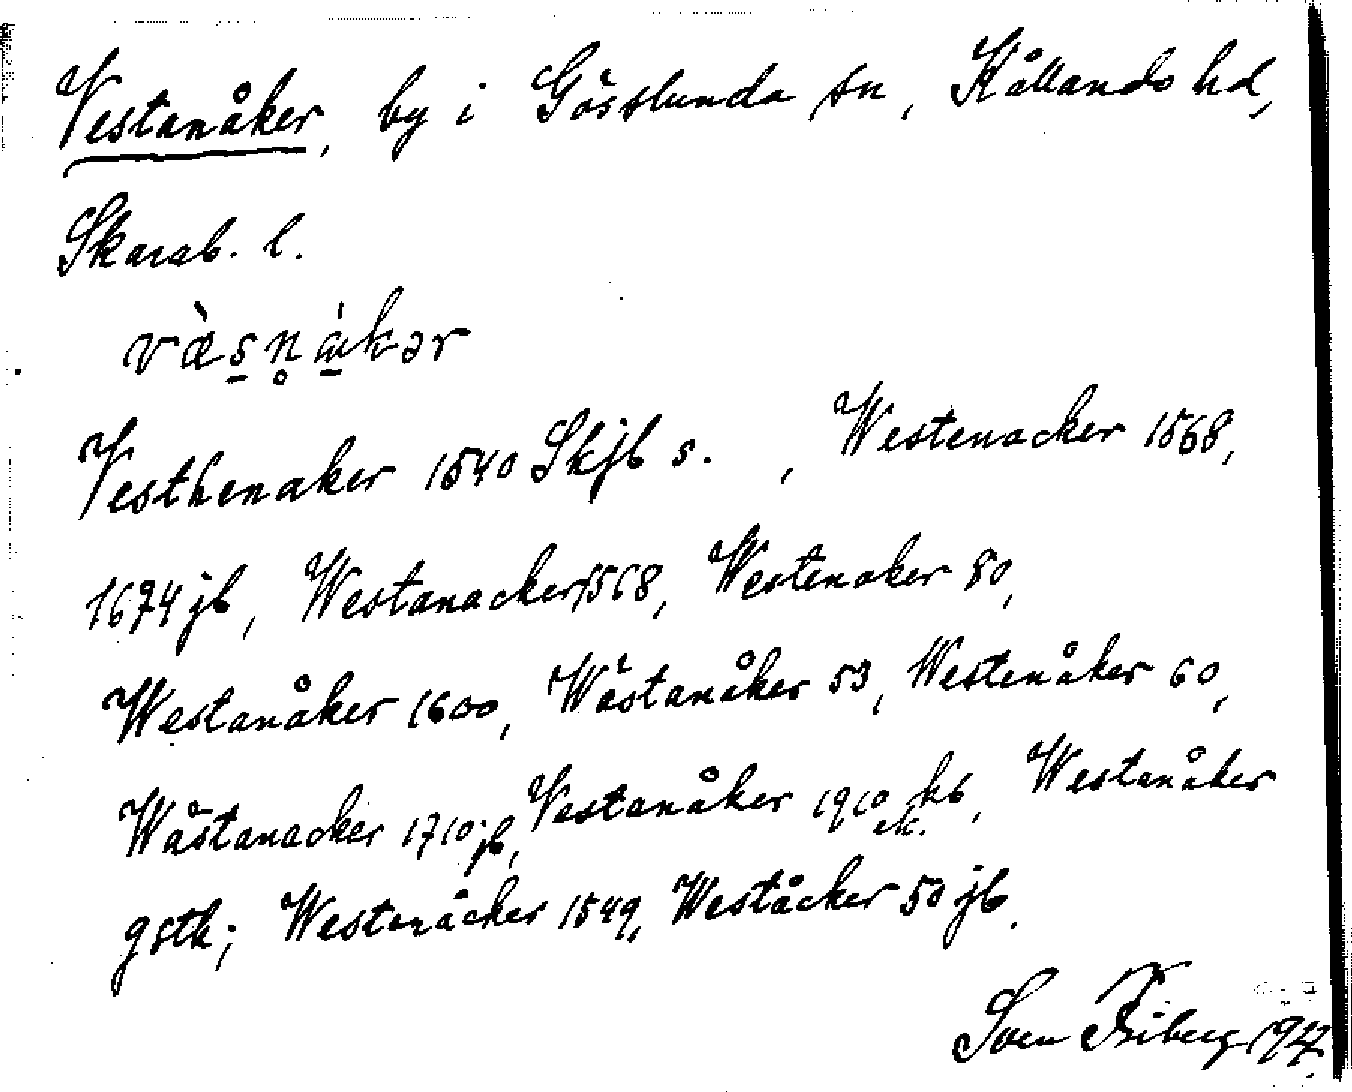 Vestanåker, by i Gösslunda sn, Kållands hd,
Skarab. l.
væ̀sn̥å̀kər
Vesthenaker 1540 Skjb s. , Westenacker 1568,
1674 jb, Westanacker 1568, Westenaker 80,
Westanåker 1600, Wästanåker 53, Westenåker 60,
Wästanacker 1710 jb, Vestanåker 1910 kb ek., Westanåker
gstk; Westeråcker 1549, Weståcker 50 jb.
Sven Friberg